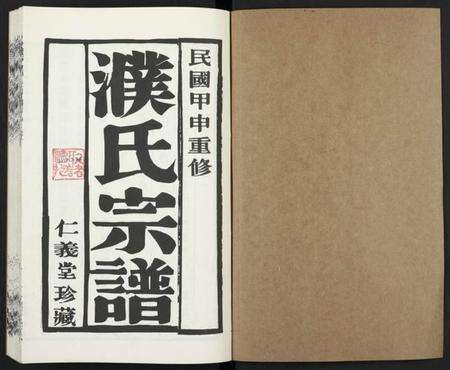 民國甲申重修
濮氏宗譜
仁義堂珍藏